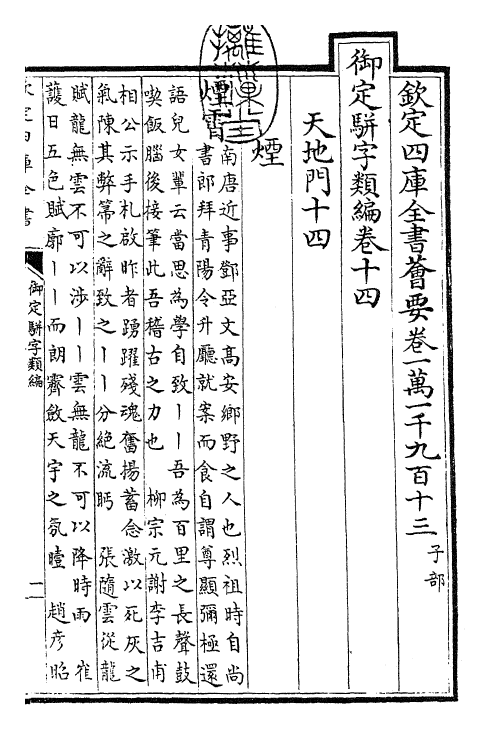 欽定四庫全書薈要卷一萬一千九百十三 子部
御定駢字類編卷十四
天地門十四
煙
煙霄 南唐近事鄧亞文髙安鄉野之人也烈祖時自尚
書郎拜青陽令升廳就案而食自謂尊顯彌極還
語兒女輩云當思為學自致丨丨吾為百里之長聲鼓
喫飯腦後接筆此吾稽古之力也 柳宗元謝李吉甫
相公示手札啟昨者踴躍殘魂奮揚蓄念激以死灰之
氣陳其弊帚之辭致之丨丨分絕流眄 張隨雲從龍
賦龍無雲不可以涉丨丨雲無龍不可以降時雨 崔
護日五色賦廓丨丨而朗霽斂天宇之氛曀 趙彦昭
欽定四庫全書
御定駢字類編
一